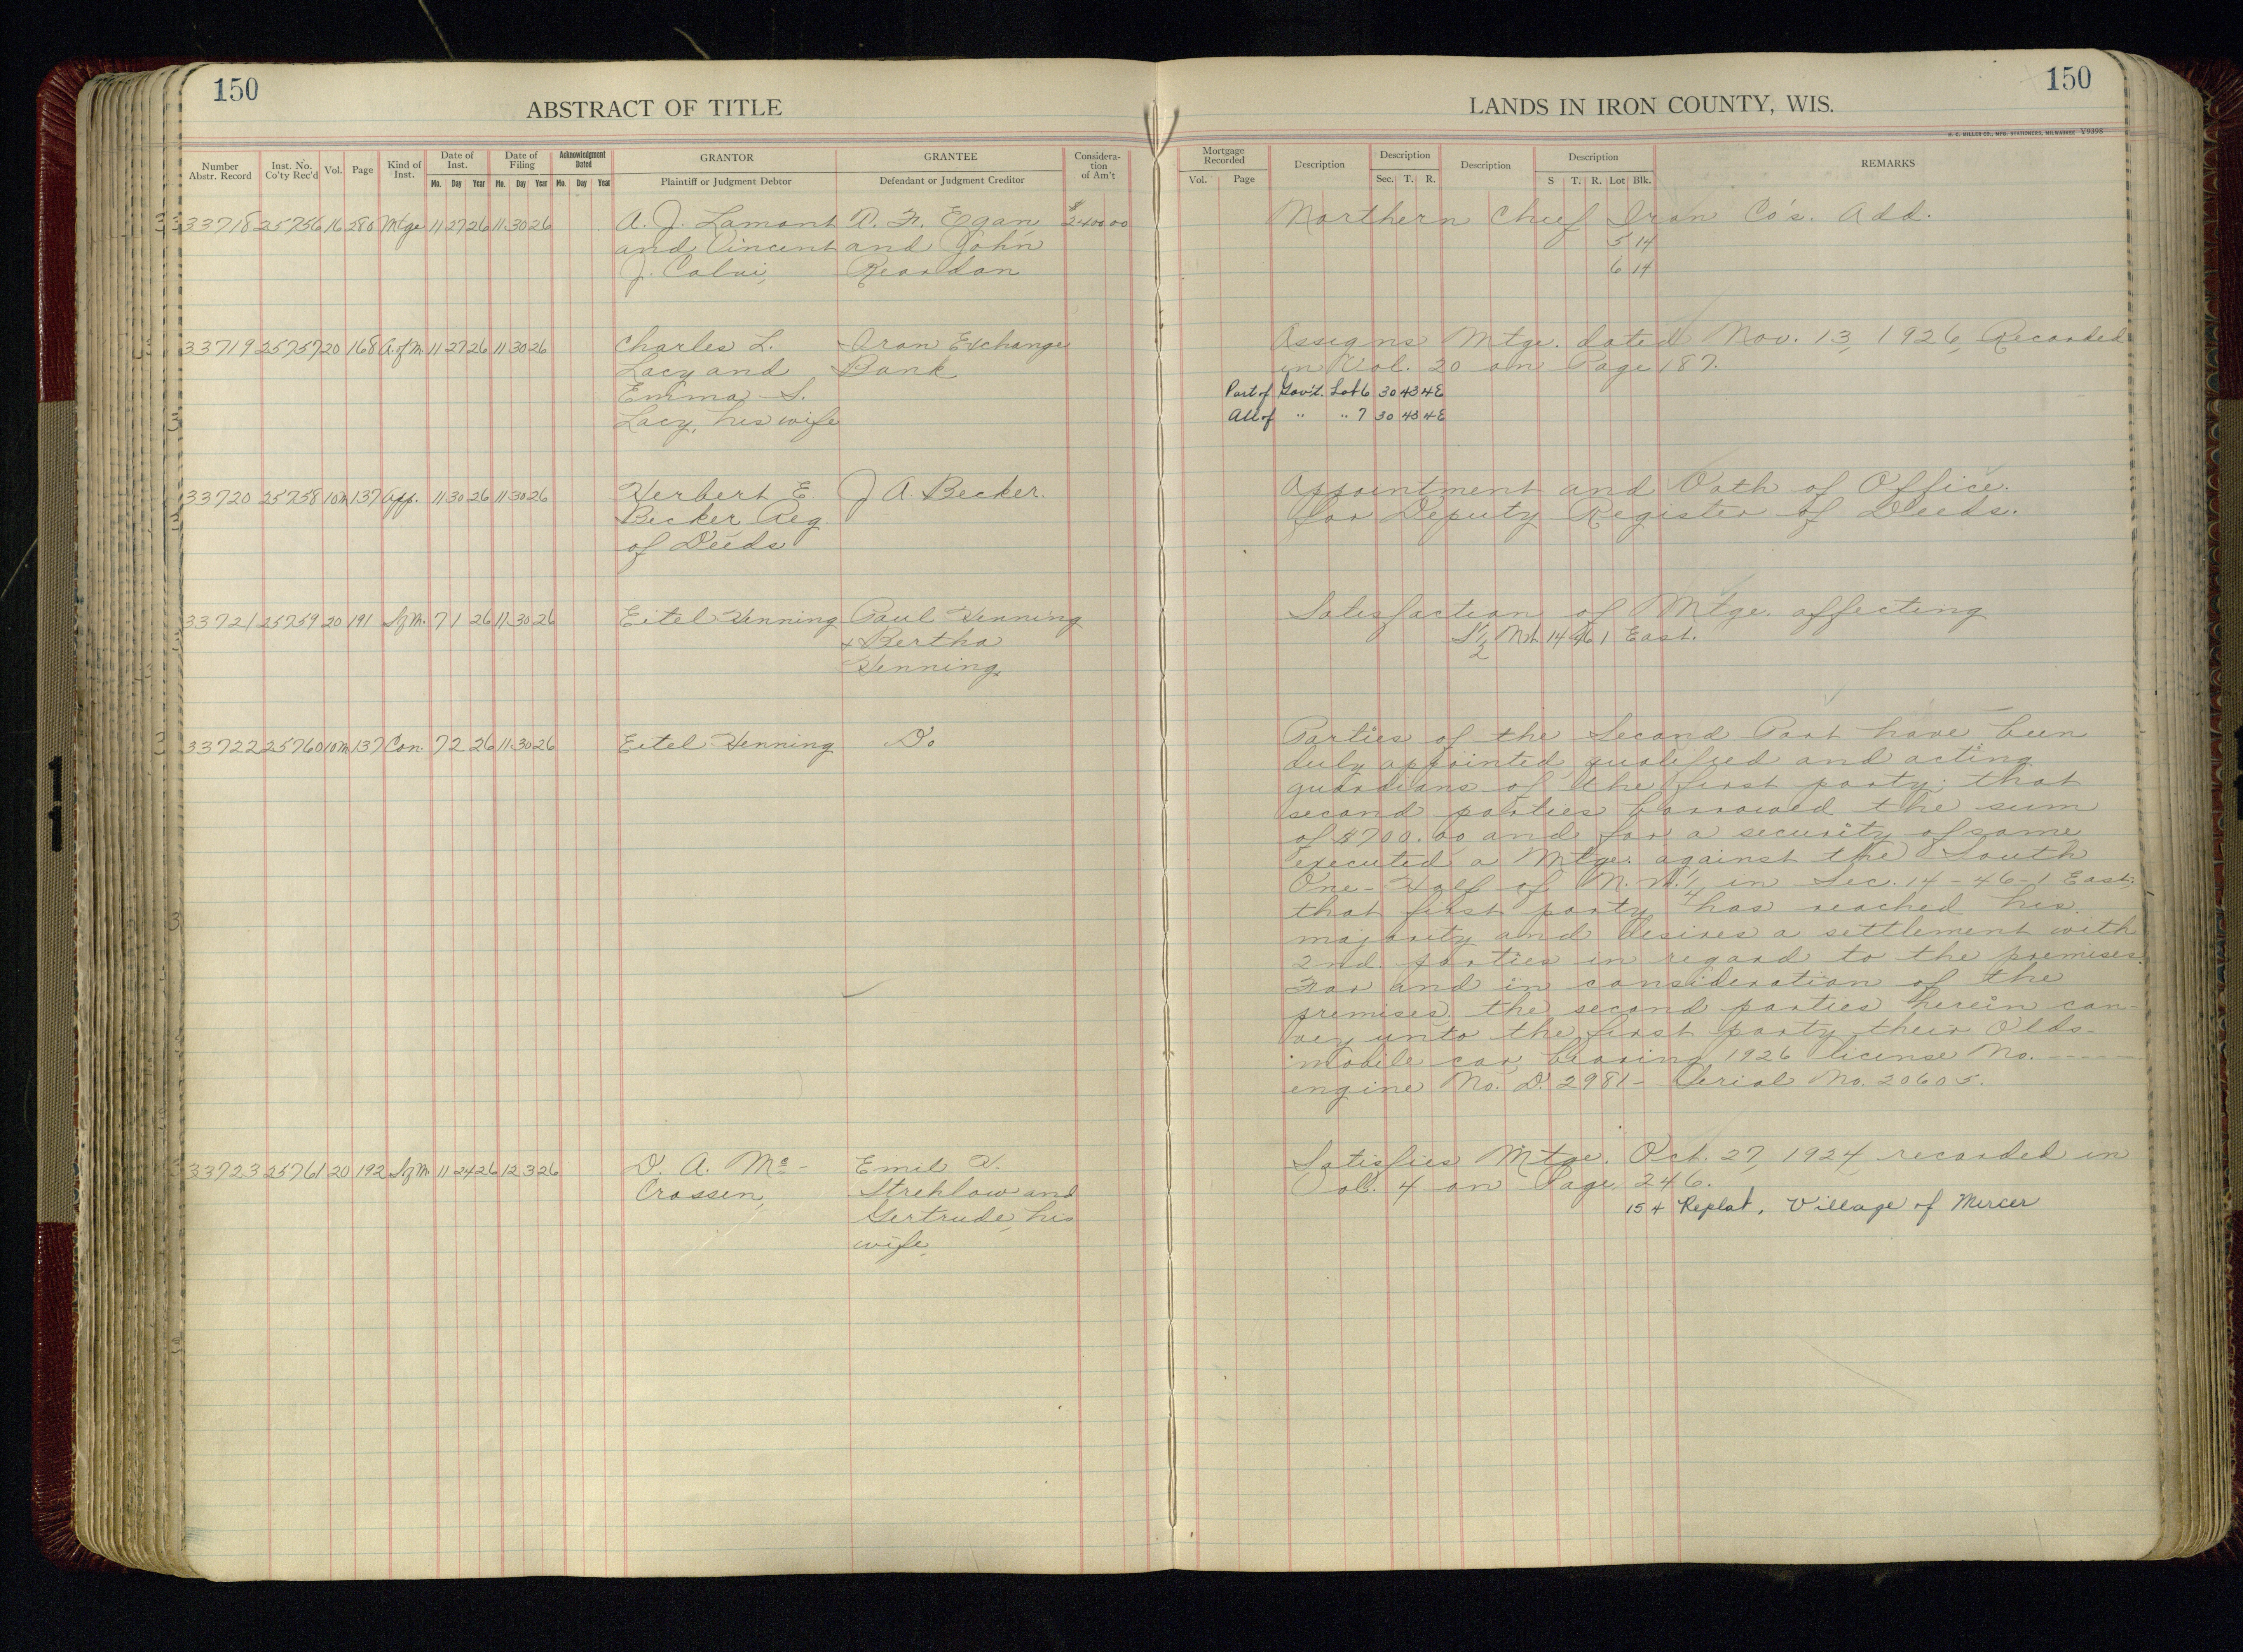 150
ABSTRACT OF TITLE
Number Abstr. Record
Inst. No. Co'ty Rec'd
Vol.
Page
Kind of Inst.
Date of Inst.
Mo. Day Year
Date of Filing
Mo. Day Year
Acknowledgment Dated
Mo. Day Year
GRANTOR
Plaintiff or Judgment Debtor
GRANTEE
Defendant or Judgment Creditor
Considera-tion of Am't
33718 25756 16 280 Mtge 11 27 26 11 30 26 A. J. Lamont F. Egan, $2400 00
and Vincent and John
J. Calvi, Reardon
33719 25757 20 168 A. of M. 11 27 26 11 30 26 Charles L. Iron Exchange
Lacy and Bank
Emma S.
Lacy, his wife
33720 25758 10m 137 App. 11 30 26 11 30 26 Herbert E. J A. Becker.
Becker Reg.
of Deeds
33721 25759 20 191 Sf M. 7 1 26 11 30 26 Eitel Henning Paul Henning
& Bertha
Henning
33722 25760 10m 137 Con. 7 2 26 11 30 26 Eitel Henning Do
33723 25761 20 192 Sf M 11 24 26 12 3 26 D. A. Mc- Emil
Crossen, Strehlow and
Gertrude, his
wife,
150
LANDS IN IRON COUNTY, WIS.
H. C. MILLER CO., MFG. STATIONERS, MILWAUKEE V9398
Mortgage Recorded
Vol. Page
Description
Description
Sec. T. R.
Description
Description
S T. R. Lot Blk.
REMARKS
Northern Chief Iron Co's. Add.
5 14
6 14
Assigns Mtge. dated Nov. 13, 1926, Recorded
in Vol. 20 on Page 187.
Part of Gov't. Lot 6 30 43 4E
All of " " 7 30 43 4E
Appointment and Oath of Office.
for Deputy Register of Deeds.
Satisfaction of Mtge. affecting
S 1/2 NW 14 46 1 East.
Parties of the Second Part have been
duly appointed, qualified and acting
guardians of the first party; that
second parties borrowed the sum
of $700.00 and for a security of same
executed a Mtge. against the South
One-Half of N. W. 1/4 in Sec. 14-46-1 East;
that first party has reached his
majority and desires a settlement with
2nd. parties in regard to the premises.
For and in consideration of the
premises, the second parties herein con-
vey unto the first party their Olds-
mobile car, bearing 1926 license No. -----
engine No. D. 2981- Serial No. 20605.
Satisfies Mtge. Oct. 27, 1924 recorded in
Vol. 4 on Page 246.
15 4 Replat, Village of Mercer